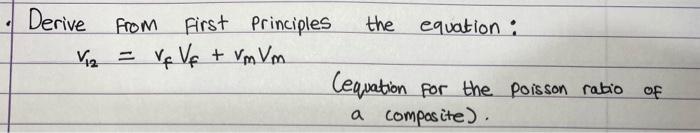 • Derive from First Principles the equation :
ν₁₂ = ν_f V_f + ν_m V_m
(equation for the poisson ratio of
a composite).